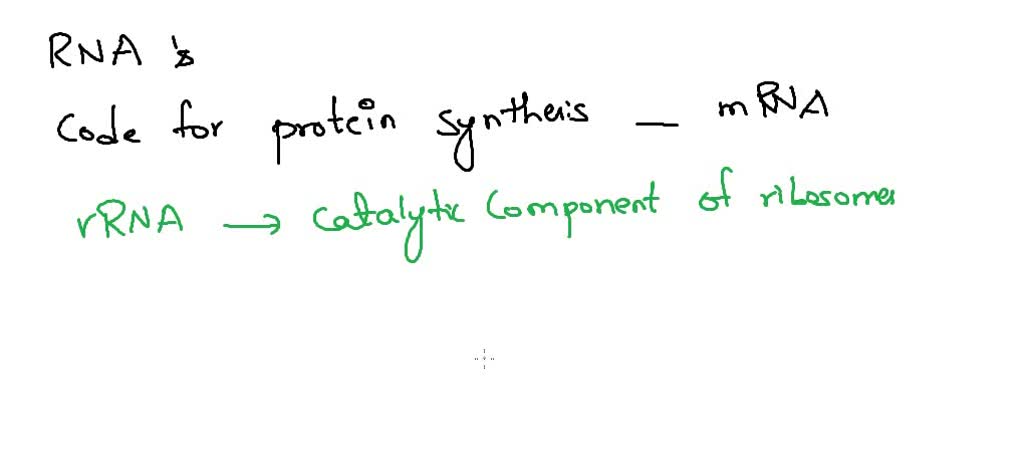 RNA's
Code for protein synthesis — mRNA
rRNA → Catalytic Component of ribosomes